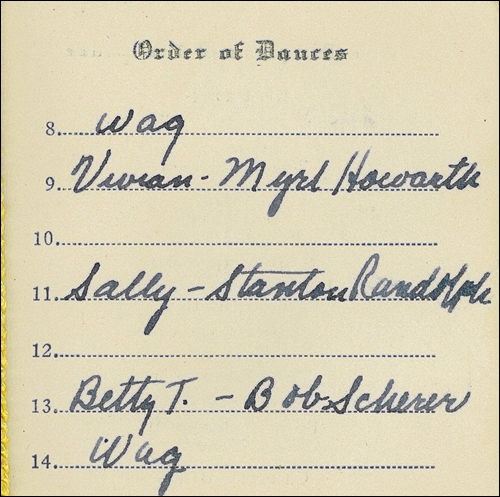 Order of Dances
8. Wag
9. Vivian - Myrl Howarth
10.
11. Sally - Stanton Randolph
12.
13. Betty T. - Bob Scherer
14. Wag